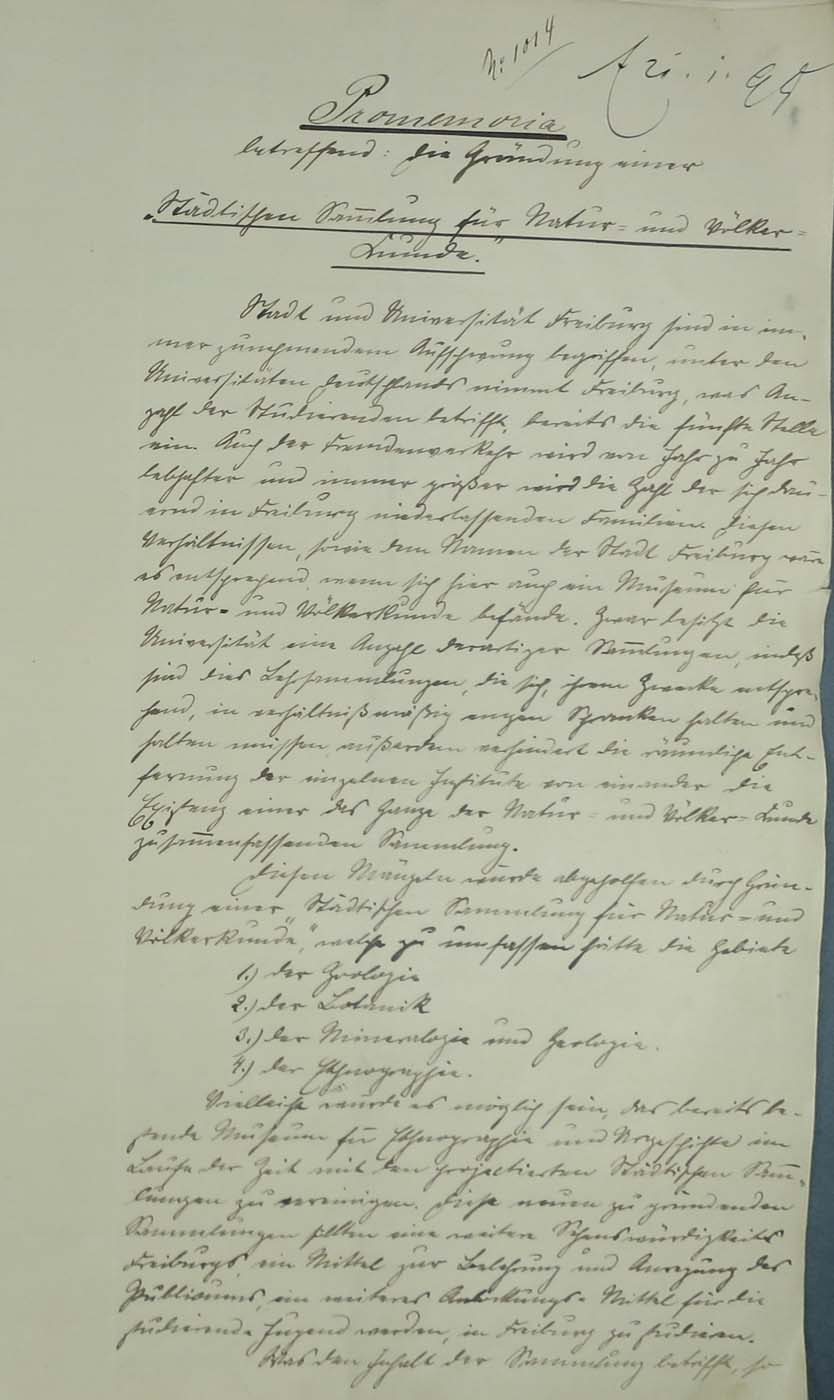 No 1014
21. 1. 95
Promemoria
betreffend: die Gründung einer
„Städtischen Sam̅lung für Natur- und Völker-
kunde."
Stadt und Universität Freiburg sind in im-
mer zunehmendem Aufschwung begriffen, unter den
Universitäten Deutschlands nimmt Freiburg, was An-
zahl der Studierenden betrifft, bereits die fünfte Stelle
ein. Auch der Fremdenverkehr wird von Jahr zu Jahr
lebhafter und immer größer wird die Zahl der sich dau-
ernd in Freiburg niederlassenden Familien. Diesen
Verhältnissen, sowie dem Namen der Stadt Freiburg wäre
es entsprechend, wenn sich hier auch ein Museum für
Natur- und Völkerkunde befände. Zwar besitzt die
Universität eine Anzahl derartiger Sam̅lungen, indeß
sind dies Lehrsammlungen, die sich, ihrem Zwecke entspre-
chend, in verhältnißmäßig engen Schranken halten und
halten müssen, außerdem verhindert die räumliche Ent-
fernung der einzelnen Institute von einander die
Existenz einer das Ganze der Natur- und Völker-kunde
zusam̅enfassenden Sammlung.
Diesen Mängeln würde abgeholfen durch Grün-
dung einer „Städtischen Sammlung für Natur- und
Völkerkunde", welche zu umfassen hätte die Gebiete
1.) der Zoologie
2.) der Botanik
3.) der Mineralogie und Geologie.
4.) der Ethnographie.
Vielleicht würde es möglich sein, das bereits be-
stehende Museum für Ethnographie und Urgeschichte im
Laufe der Zeit mit den projektierten Städtischen Sam̅-
lungen zu vereinigen. Diese neuen zu gründenden
Sammlungen sollten eine weitere Sehenswürdigkeit
Freiburgs, ein Mittel zur Belehrung und Anregung des
Publicums, ein weiteres Anlockungs-Mittel für die
studierende Jugend werden, in Freiburg zu studieren.
Was den Inhalt der Sammlung betrifft, so